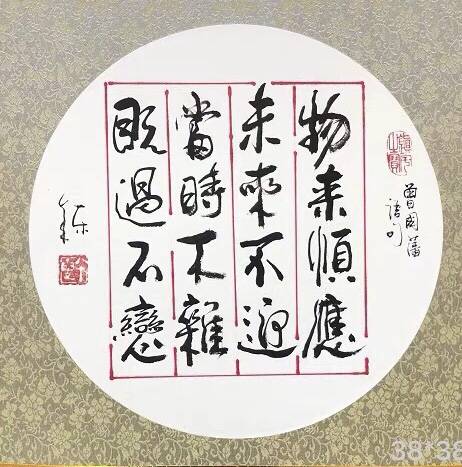 物来順應
未來不迎
當時不雜
既過不戀
曾國藩
語句
38*38